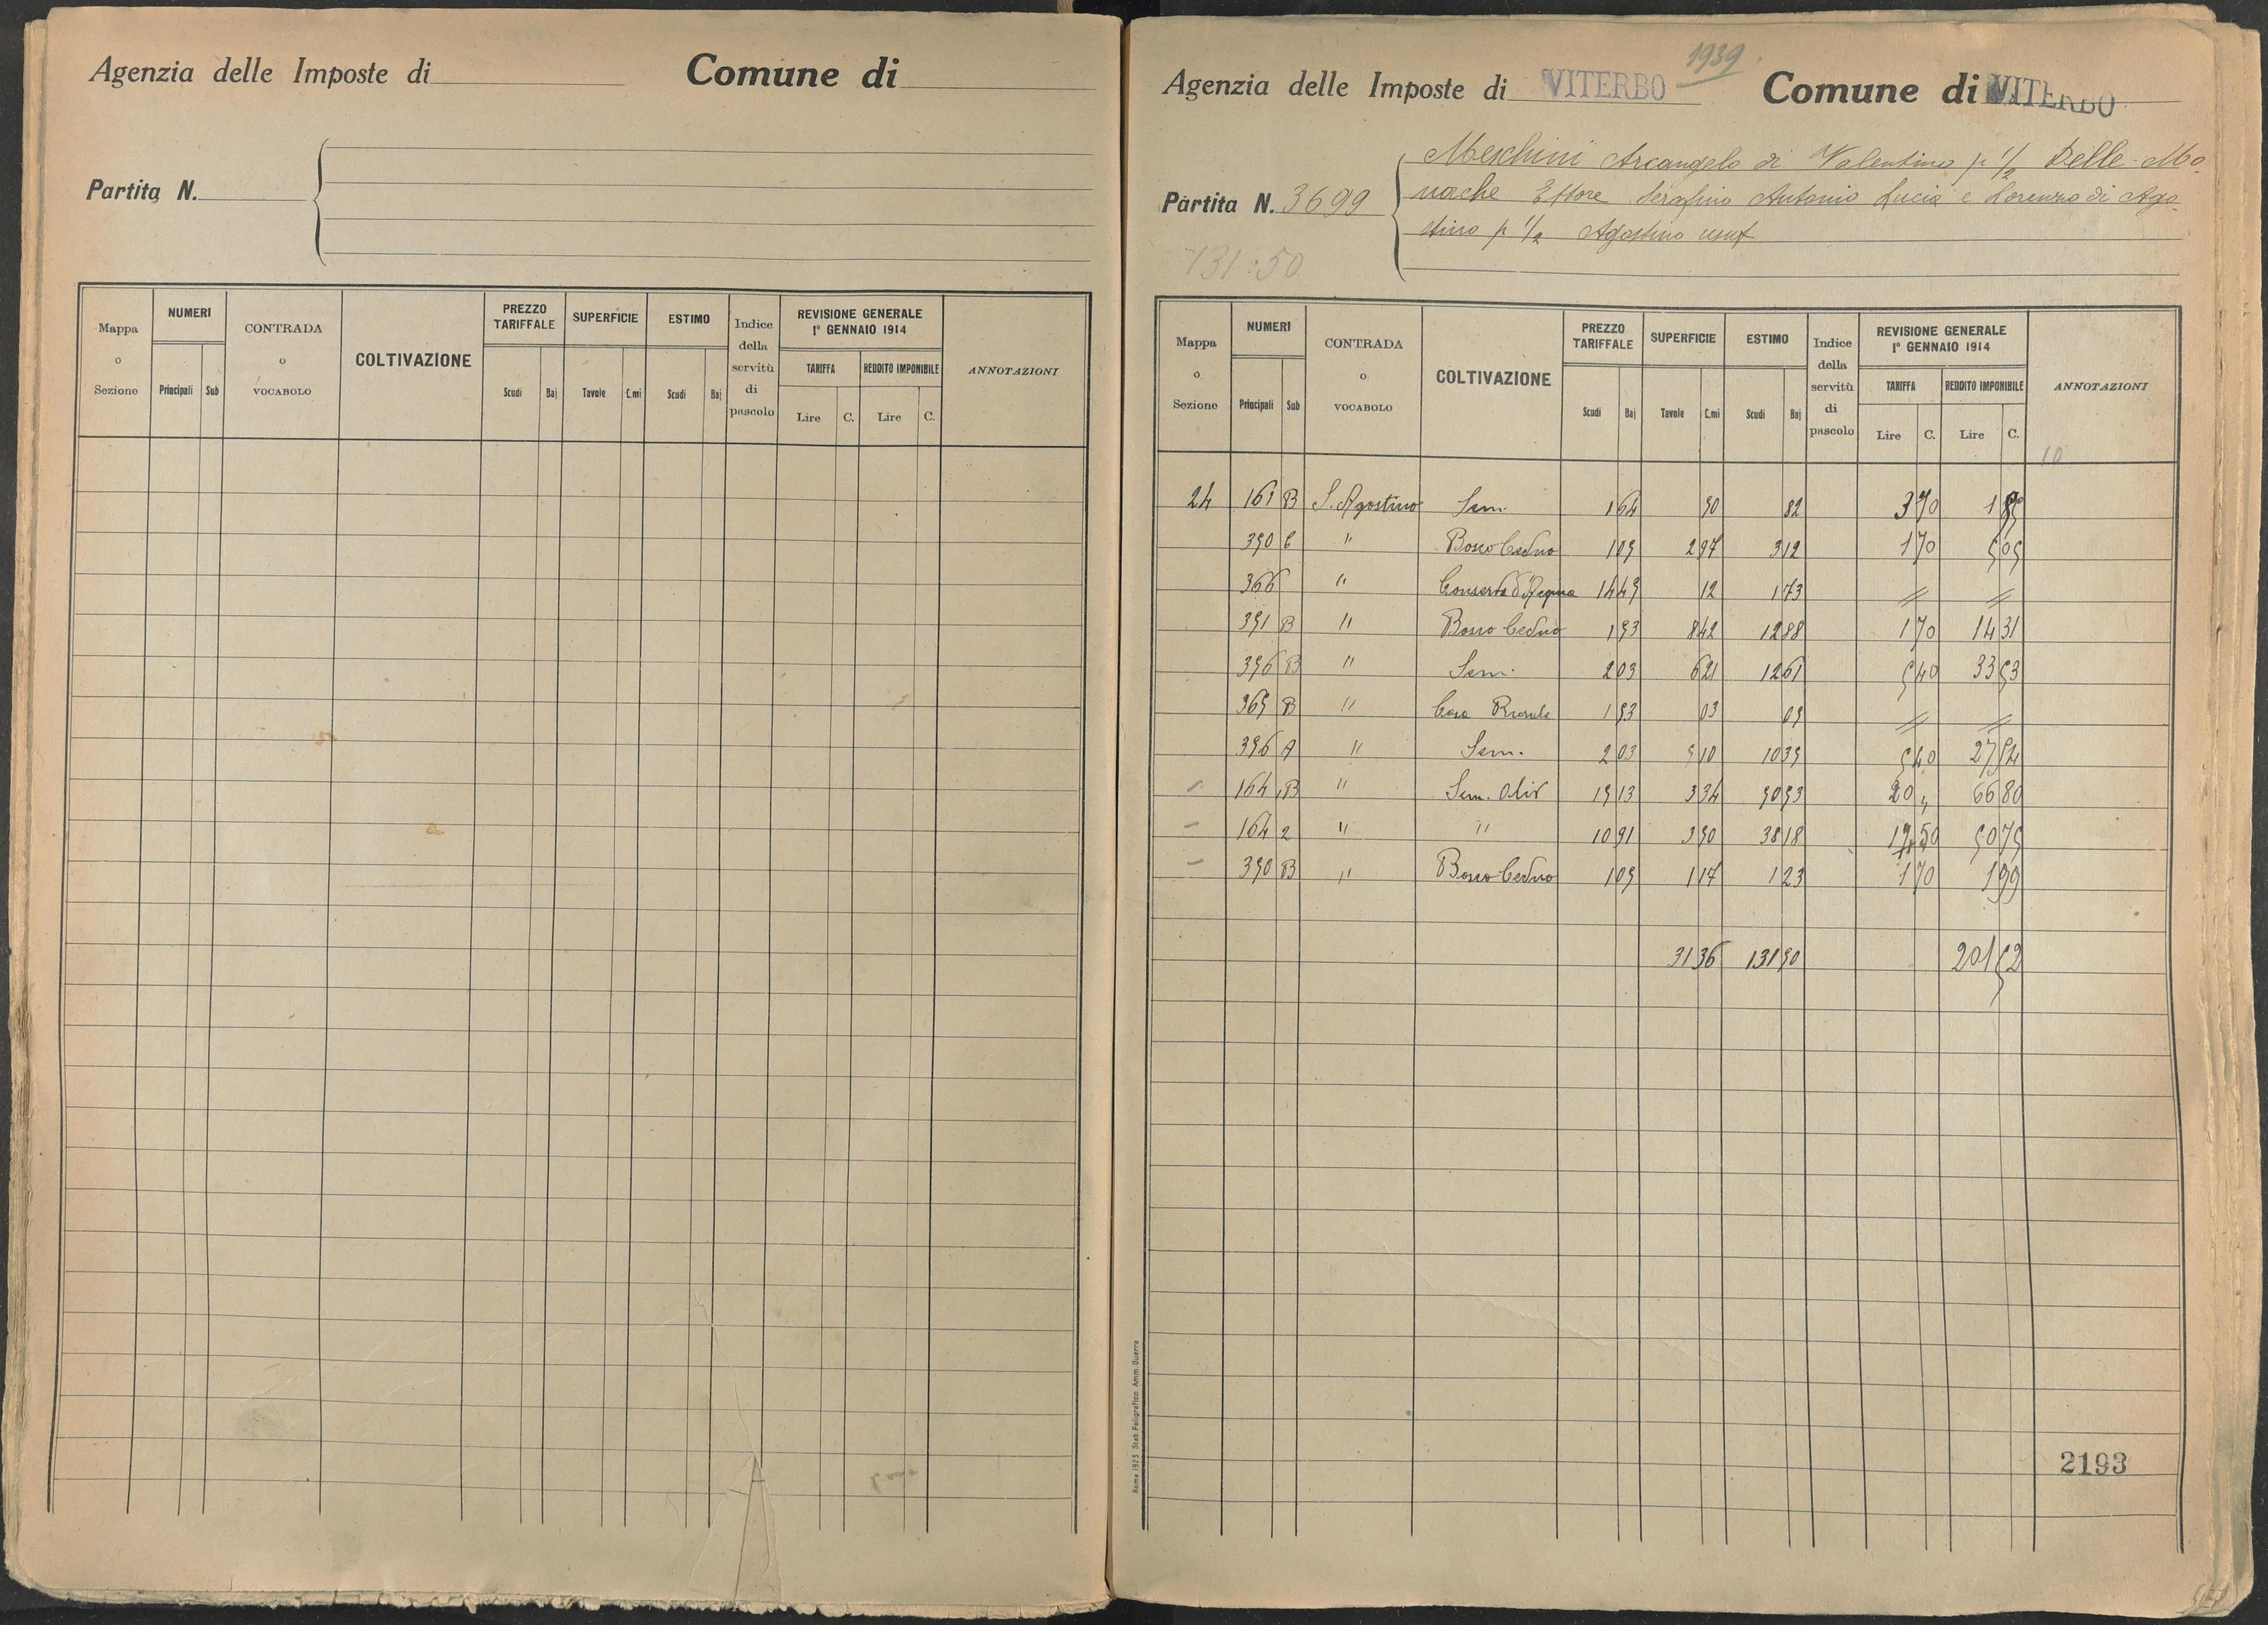 Agenzia delle Imposte di Comune di
Partita N.
Mappa o Sezione NUMERI Principali Sub CONTRADA o VOCABOLO COLTIVAZIONE PREZZO TARIFFALE Scudi Baj SUPERFICIE Tavole C.mi ESTIMO Scudi Baj Indice della servitù di pascolo REVISIONE GENERALE 1° GENNAIO 1914 TARIFFA Lire C. REDDITO IMPONIBILE Lire C. ANNOTAZIONI
1939
Agenzia delle Imposte di VITERBO Comune di VITERBO
Meschini Arcangelo di Valentino p 1/2 Delle Mo-
Partita N. 3699 nache Ettore Serafino Antonio Lucia e Lorenzo di Ago-
stino p 1/2 Agostino usuf
131:50
Mappa o Sezione NUMERI Principali Sub CONTRADA o VOCABOLO COLTIVAZIONE PREZZO TARIFFALE Scudi Baj SUPERFICIE Tavole C.mi ESTIMO Scudi Baj Indice della servitù di pascolo REVISIONE GENERALE 1° GENNAIO 1914 TARIFFA Lire C. REDDITO IMPONIBILE Lire C. ANNOTAZIONI
10
24 161 B S. Agostino Sem. 1 64 50 82 3 70 1 85
350 C " Bosco Ceduo 1 05 2 97 3 12 1 70 5 05
366 " Conserva d'Acqua 14 45 12 1 73 " "
351 B " Bosco Ceduo 1 53 8 42 12 88 1 70 14 31
356 B " Sem. 2 03 6 21 12 61 5 40 33 53
365 B " Casa Rurale 1 53 03 05 " "
356 A " Sem. 2 03 5 10 10 35 5 40 27 54
164 B " Sem. Oliv 15 13 3 34 50 53 20 " 66 80
164 2 " " 10 91 3 50 38 18 14 50 50 75
350 B " Bosco Ceduo 1 05 1 17 1 23 1 70 1 99
31 36 131 50 201 52
Roma 1923 Stab. Poligrafico Amm. Guerra
2193